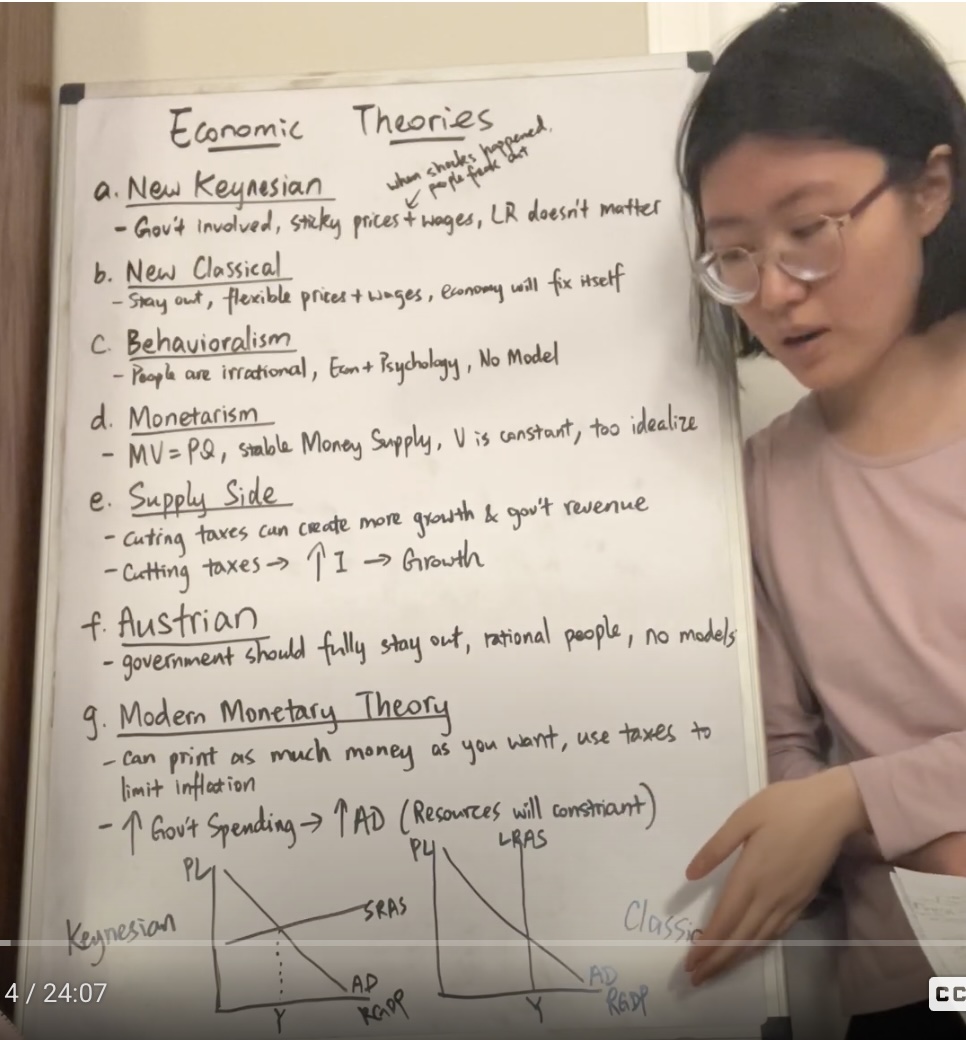 Economic Theories
when shocks happened.
people freak out
a. New Keynesian
- Gov't involved, sticky prices + wages, LR doesn't matter
b. New Classical
- Stay out, flexible prices + wages, economy will fix itself
c. Behavioralism
- People are irrational, Econ + Psychology, No Model
d. Monetarism
- MV = PQ, stable Money Supply, V is constant, too idealize
e. Supply Side
- cuting taxes can create more growth & gov't revenue
- Cutting taxes → ↑ I → Growth
f. Austrian
- government should fully stay out, rational people, no models
g. Modern Monetary Theory
- Can print as much money as you want, use taxes to
limit inflation
- ↑ Gov't Spending → ↑ AD (Resources will constriant)
Keynesian
PL
SRAS
AD
Y
RGDP
PL
LRAS
Classic
AD
Y
RGDP
4 / 24:07
CC